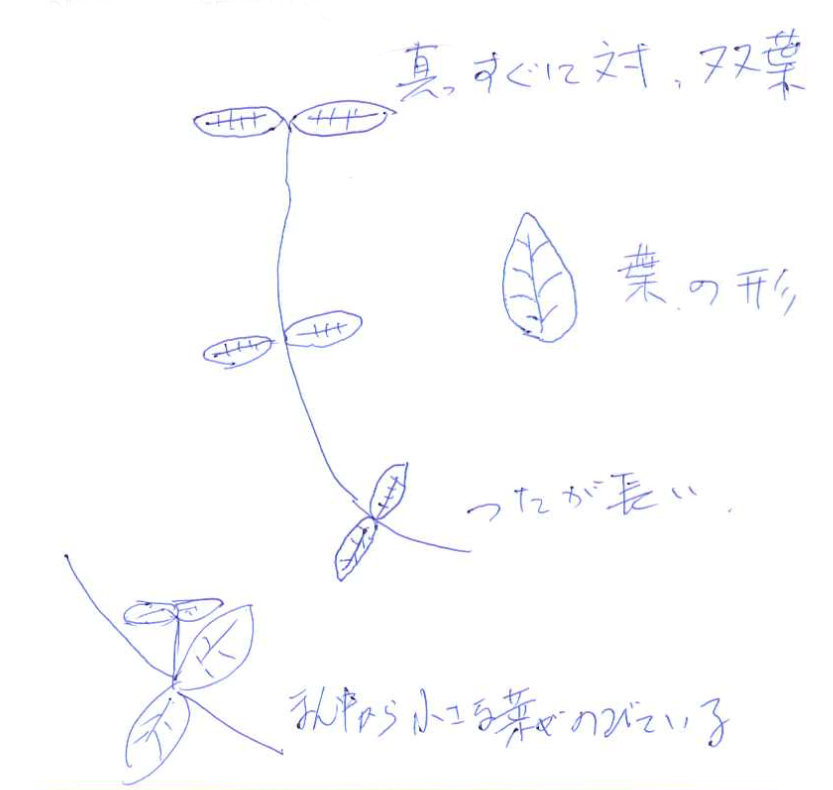 真っすぐに対、双葉
葉の形
つたが長い
まん中から小さな葉がのびている